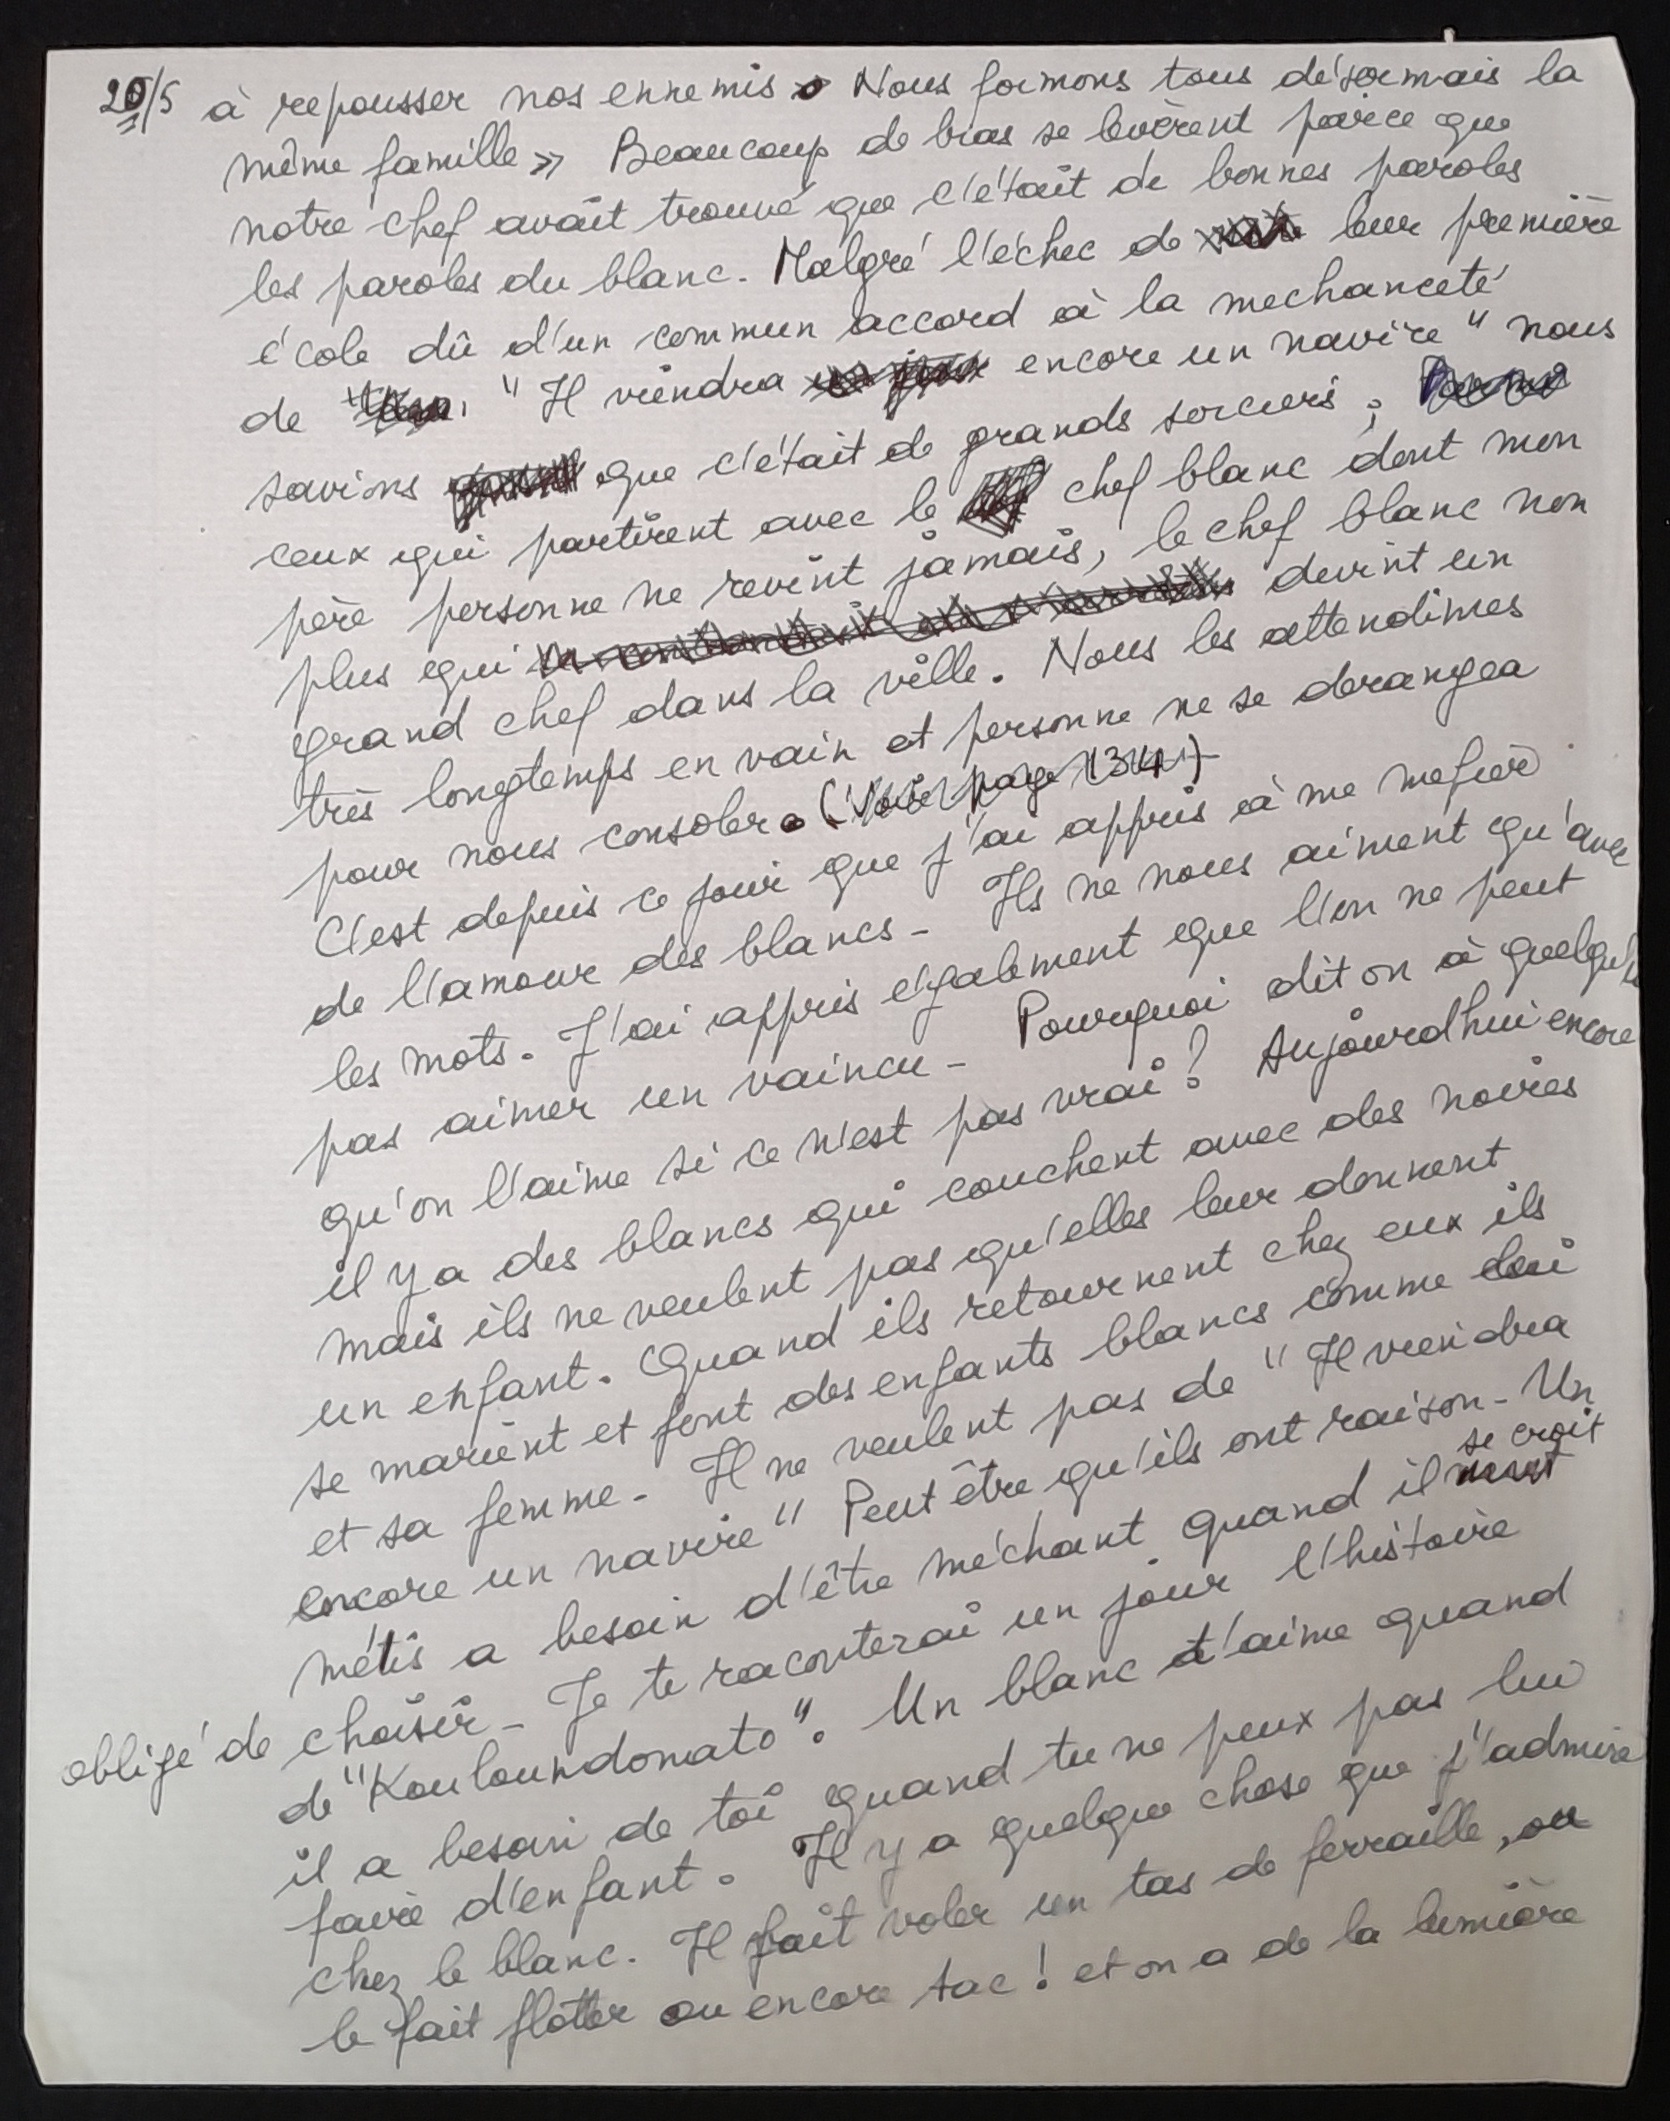 20/5 à repousser nos ennemis. Nous formons tous désormais la
même famille » Beaucoup de bras se levèrent parce que
notre chef avait trouvé que c'était de bonnes paroles
les paroles du blanc. Malgré l'échec de leur première
école dû d'un commun accord à la mechanceté
de "Il viendra encore un navire" nous
savions que c'était de grands sorciers ;
ceux qui partirent avec le chef blanc dont mon
père personne ne revint jamais, le chef blanc non
plus qui devint un
grand chef dans la ville. Nous les attendimes
très longtemps en vain et personne ne se derangea
pour nous consoler.
C'est depuis ce jour que j'ai appris à me mefier
de l'amour des blancs - Ils ne nous aiment qu'avec
les mots. J'ai appris également que l'on ne peut
pas aimer un vaincu - Pourquoi dit on à quelqu'un
qu'on l'aime si ce n'est pas vrai ? Aujourdhui encore
il y a des blancs qui couchent avec des noires
mais ils ne veulent pas qu'elles leur donnent
un enfant. Quand ils retournent chez eux ils
se marient et font des enfants blancs comme lui
et sa femme - Il ne veulent pas de "Il viendra
encore un navire" Peut être qu'ils ont raison - Un
métis a besoin d'être méchant quand il se croit
obligé de choisir - Je te raconterai un jour l'histoire
de "Kouloundonato". Un blanc t'aime quand
il a besoin de toi quand tu ne peux pas lui
faire d'enfant. Il y a quelque chose que j'admire
chez le blanc. Il fait voler un tas de ferraille, ou
le fait flotter ou encore tac ! et on a de la lumière